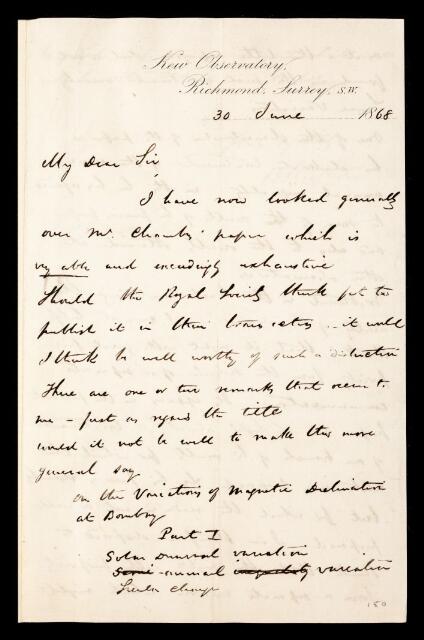 Kew Observatory,
Richmond, Surrey, S.W.
30 June 1868
My Dear Sir,
I have now looked generally
over Mr. Chambers' paper which is
very able and exceedingly exhaustive
Should the Royal Society think fit to
publish it in their Transactions it would
I think be well worthy of such a distinction
There are one or two remarks that occur to
me - first as regards the title
would it not be well to make this more
general say
On the Variations of Magnetic Declination
at Bombay
Part I
Solar Diurnal variation
Semi-annual inequality variation
Secular change
150